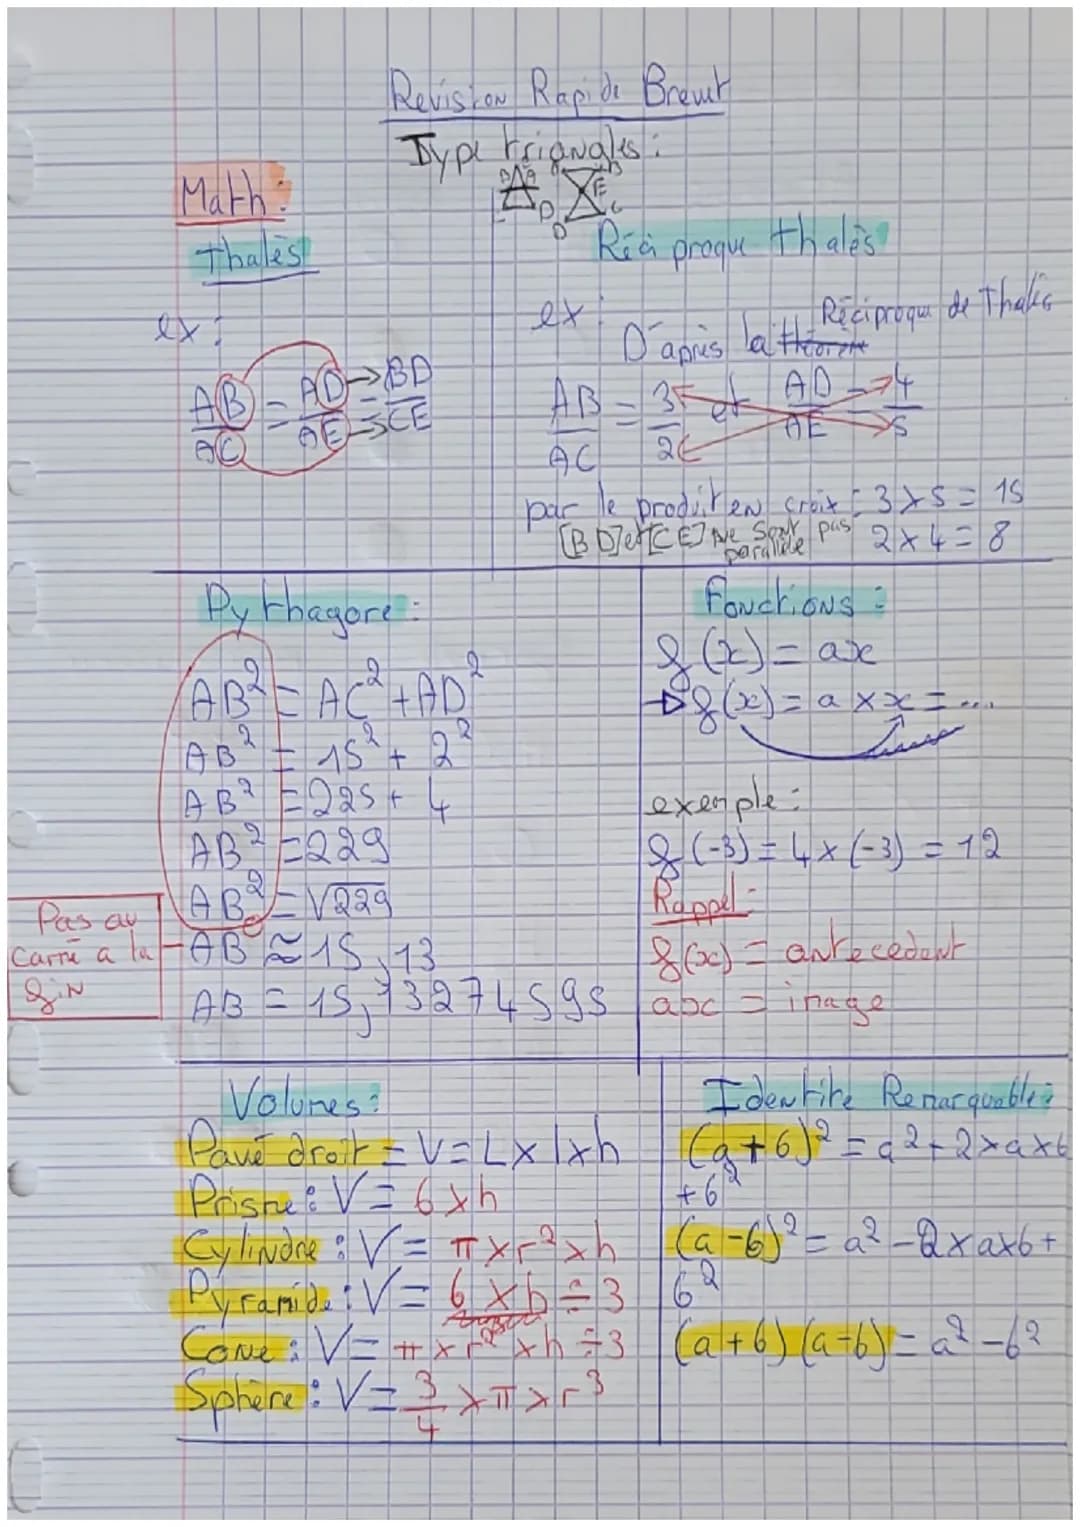 Révision Rapide Brevet
Type triangles :
B A D
B E C D
Math :
Thalès
ex :
AB/AC = AD/AE = BD/CE
Réciproque thalès
ex :
Réciproque de Thalès
D'après la théorème
AB/AC = 3/2 et AD/AE = 4/5
par le produit en croix : 3 x 5 = 15
[BD] et [CE] ne sont pas parallèle
2 x 4 = 8
Pythagore :
AB² = AC² + AD²
AB² = 15² + 2²
AB² = 225 + 4
AB² = 229
AB² = √229
AB ≈ 15,13
AB = 15,13274595
Pas au
carré a la
fin
Fonctions :
f(x) = ax
f(x) = a x x = ...
exemple :
f(-3) = 4 x (-3) = 12
Rappel :
f(x) = antecedent
abc = image
Volumes :
Pavé droit = V = L x l x h
Prisme : V = b x h
Cylindre : V = π x r² x h
Pyramide : V = b x h ÷ 3
Cone : V = π x r² x h ÷ 3
Sphère : V = 3/4 x π x r³
Identite Remarquable :
(a + b)² = a² + 2 x a x b
+ b²
(a - b)² = a² - 2 x a x b +
b²
(a + b) (a - b) = a² - b²